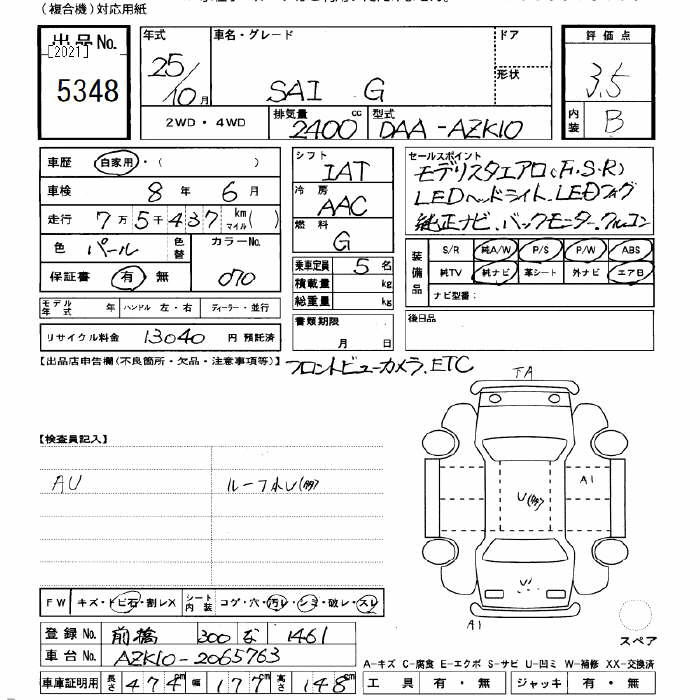 (複合機)対応用紙
出品No.
[2021]
5348
年式
25/10月
車名・グレード
SAI G
ドア
形状
評価点
3.5
2WD・4WD
排気量
2400cc
型式
DAA-AZK10
内装
B
車歴
自家用・( )
車検
8年 6月
走行
7万5千437km マイル( )
色
パール
色替
カラーNo.
070
保証書
有・無
モデル年式 年
ハンドル 左・右
ディーラー・並行
リサイクル料金 13040円 預託済
シフト
IAT
冷房
AAC
燃料
G
乗車定員 5名
積載量 kg
総重量 kg
書類期限
月 日
セールスポイント
モデリスタエアロ(F.S.R)
LEDヘッドライト.LEDフォグ
純正ナビ.バックモニター.クルコン
装備品
S/R 純A/W P/S P/W ABS
純TV 純ナビ 革シート 外ナビ エアB
ナビ型番:
後日品
【出品店申告欄(不良箇所・欠品・注意事項等)】
フロントビューカメラ.ETC
【検査員記入】
AU
FA
A1
A1
FW
キズ・トビ石・割レX
シート内装
コゲ・穴・汚レ・シミ・破レ・スレ
登録No.
前橋 300 な 1461
車台No.
AZK10-2065763
車庫証明用
長さ 474cm 幅 177cm 高さ 148cm
スペア
A-キズ C-腐食 E-エクボ S-サビ U-凹ミ W-補修 XX-交換済
工具 有・無
ジャッキ 有・無